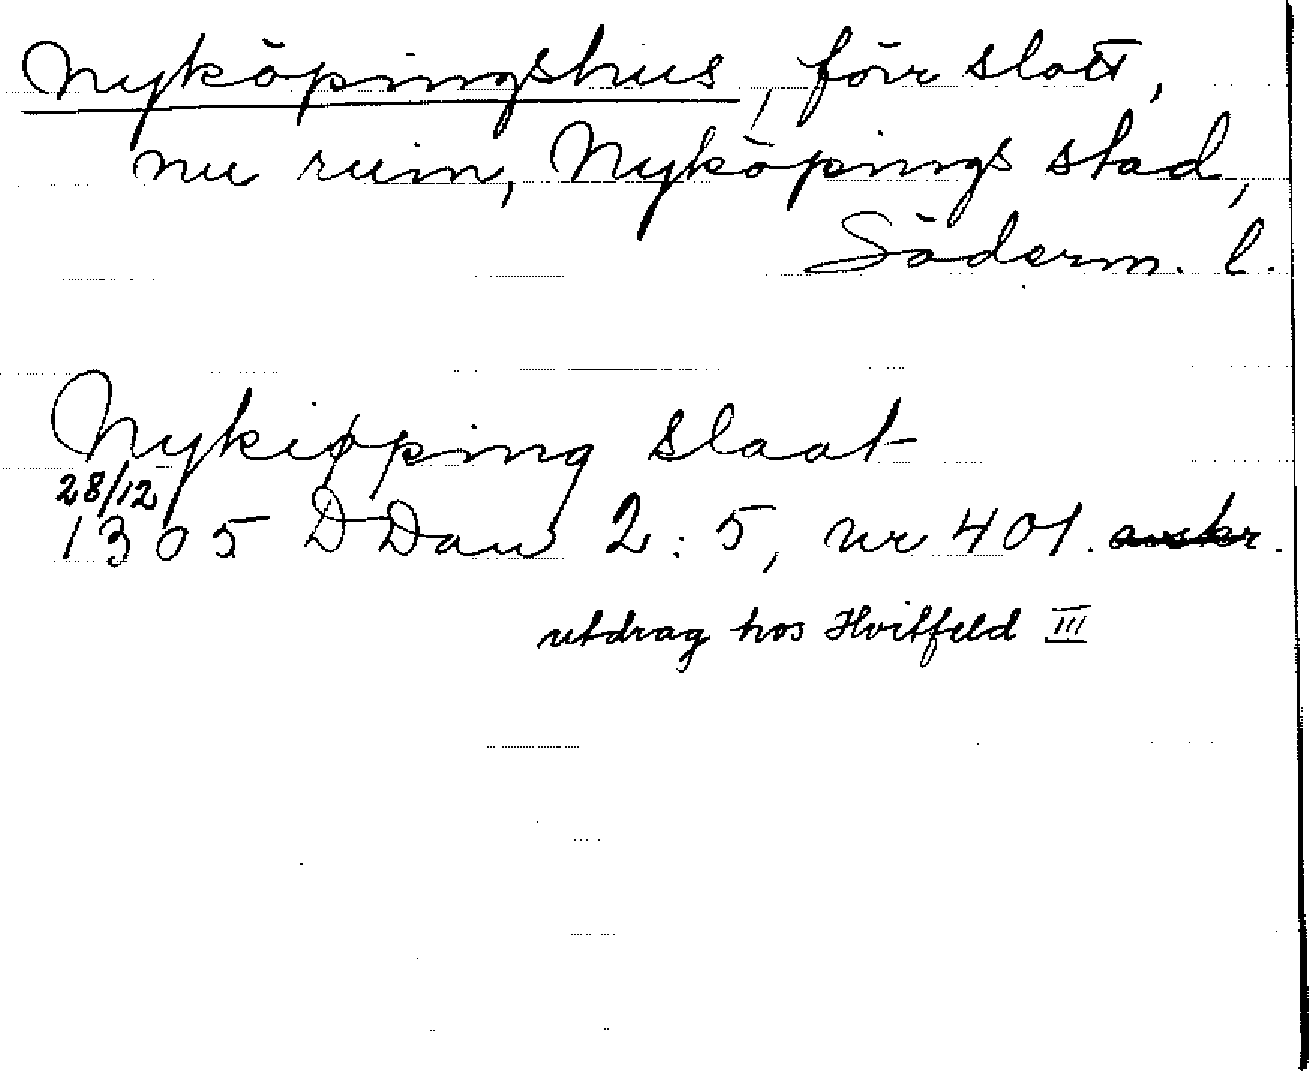 Nyköpingshus, förr slott,
nu ruin, Nyköpings stad,
Söderm. l.
Nykiøping slaat
28/12
1305 DDan 2:5, nr 401.
utdrag hos Hvitfeld III